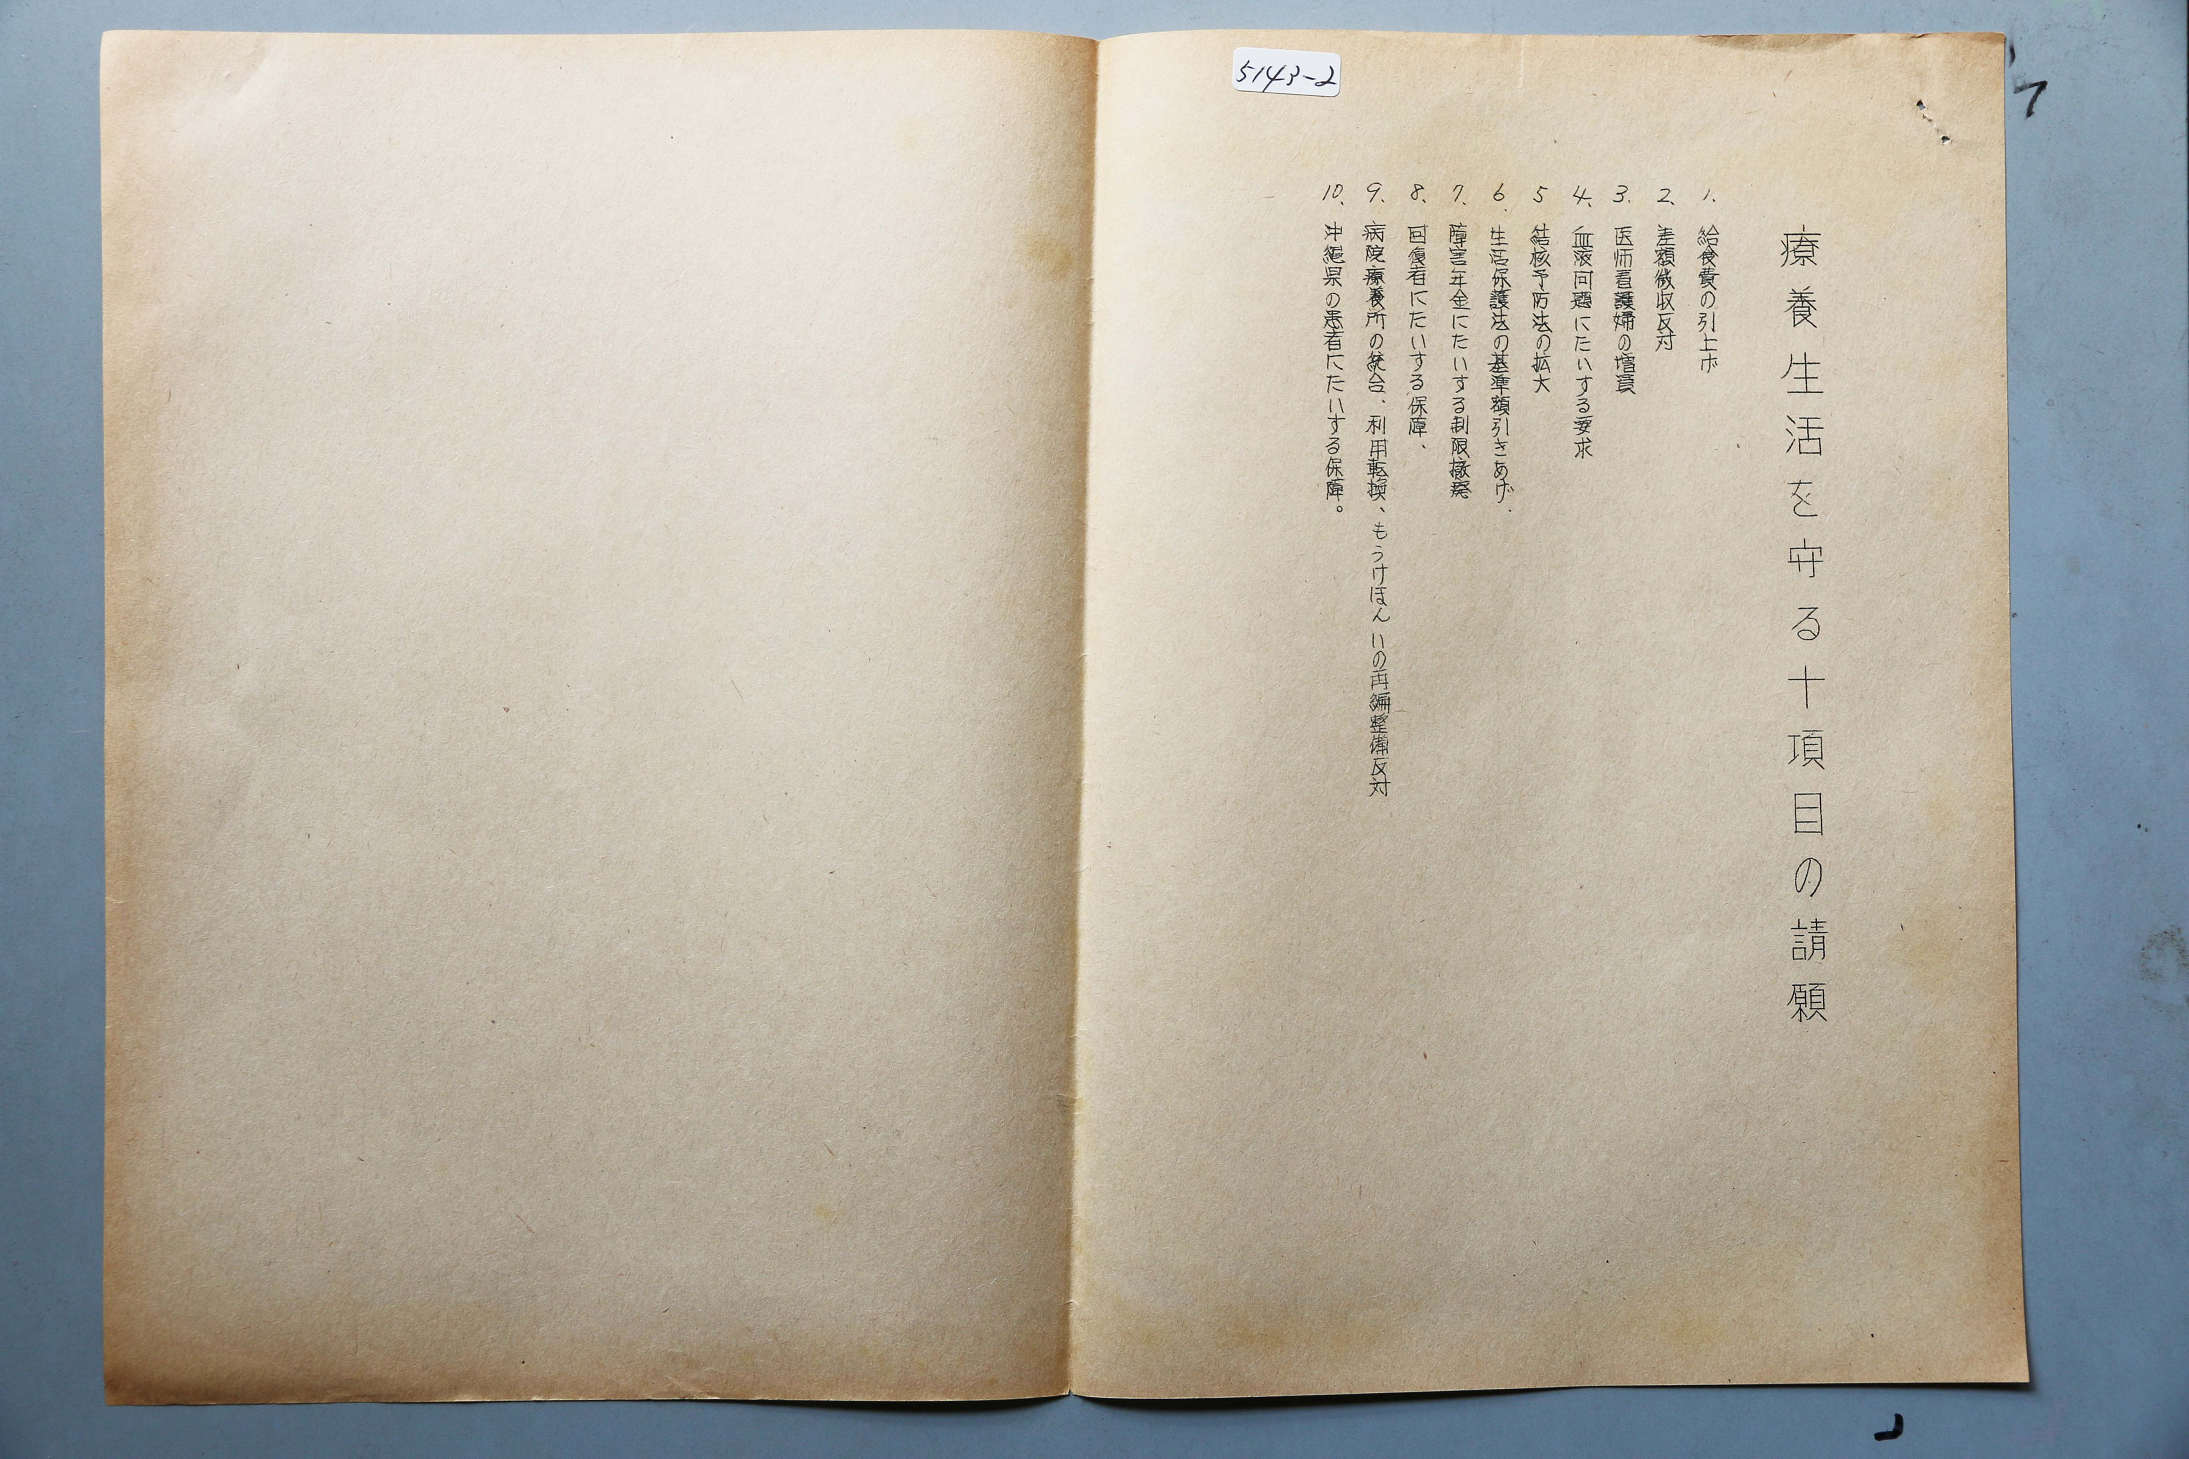 5143-2
療養生活を守る十項目の請願
1. 給食費の引上げ
2、差額徴収反対
3. 医师看護婦の増員
4、血液问題にたいする要求
5 結核予防法の拡大
6. 生活保護法の基準額引きあげ.
7. 障害年金にたいする制限撤廃
8. 回復者にたいする保障、
9. 病院療養所の統合、利用転換、もうけほんいの再編整備反対
10、沖縄県の患者にたいする保障。